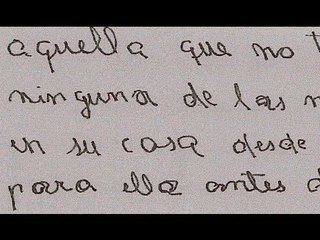 aquella que no
ninguna de las
en su casa desde
para ella antes